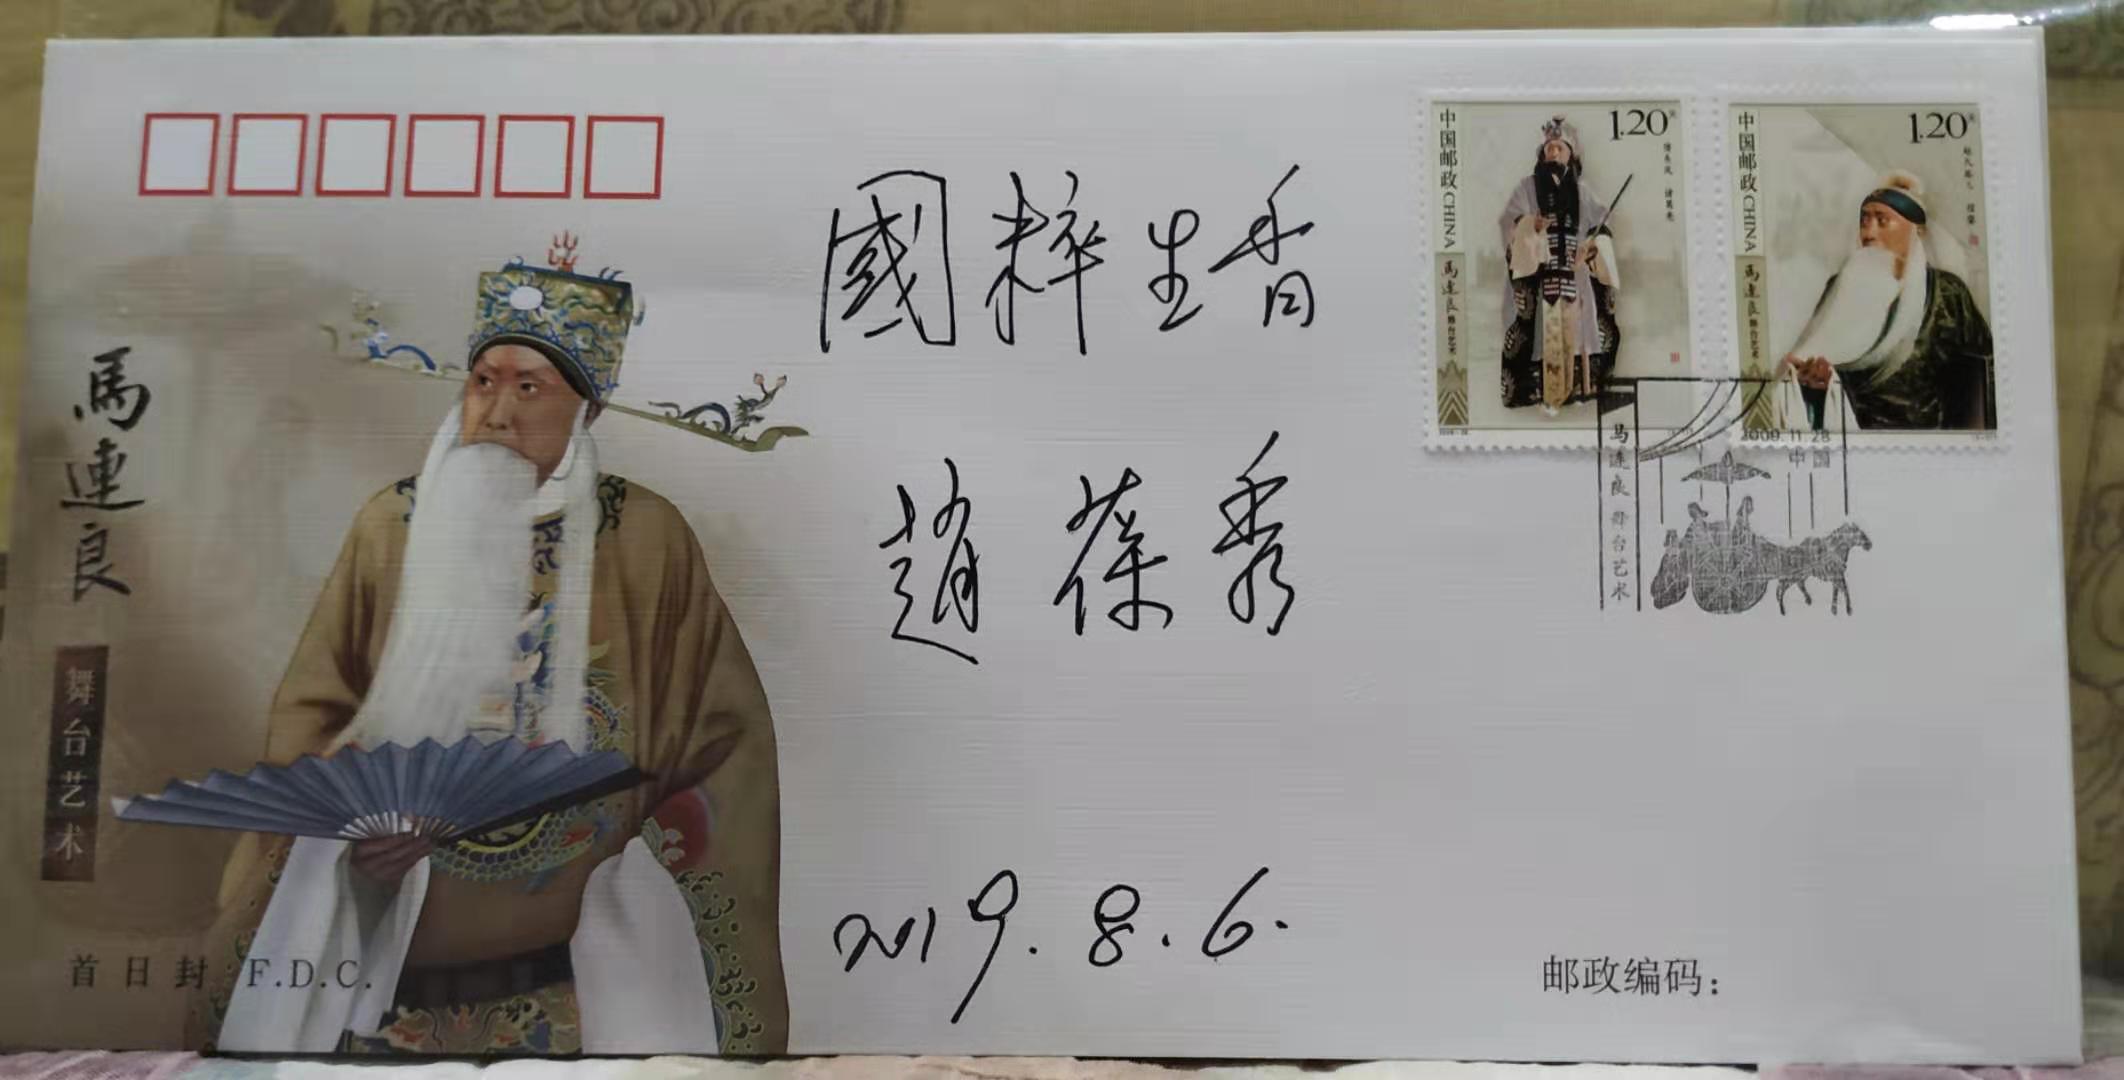 國粹生香
趙葆秀
2019.8.6.
馬連良
舞台艺术
首日封 F.D.C.
中国邮政 CHINA
1.20元
借东风 诸葛亮
馬連良舞台艺术
中国邮政 CHINA
1.20元
馬連良舞台艺术
2009.11.28
中国
马连良舞台艺术
邮政编码: